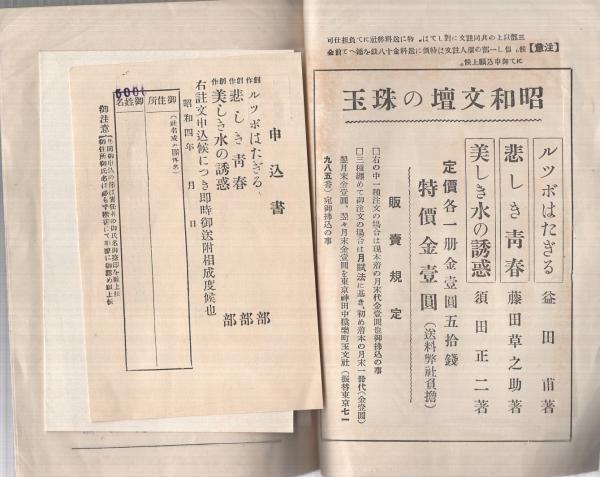 【注意】
三部以上の共同註文に對しては、特に送料弊社にて負担仕可
候。但し一部の個人註文は特價に送料金十八錢を添へて前金
にて御申込願上候。
昭和文壇の珠玉
ルツボはたぎる 益田甫著
悲しき青春 藤田草之助著
美しき水の誘惑 須田正二著
定價各一册金壹圓五拾錢
特價金壹圓(送料弊社負擔)
販賣規定
□右の中一種注文の場合は現本着の月末代金壹圓也御拂込の事
□三種纒めて御注文の場合は月賦法に基き、初め着本の月末一冊代(金壹圓)
翌月末金壹圓、翌々月末金壹圓を東京神田中猿樂町玉文社(振替東京七一
九八五番)宛御拂込の事
申込書
創作 ルツボはたぎる 部
創作 悲しき青春 部
創作 美しき水の誘惑 部
右註文申込候につき即時御送附相成度候也
昭和四年 月 日
(社名或ハ團体名)
御住所
御姓名
5001
御注意